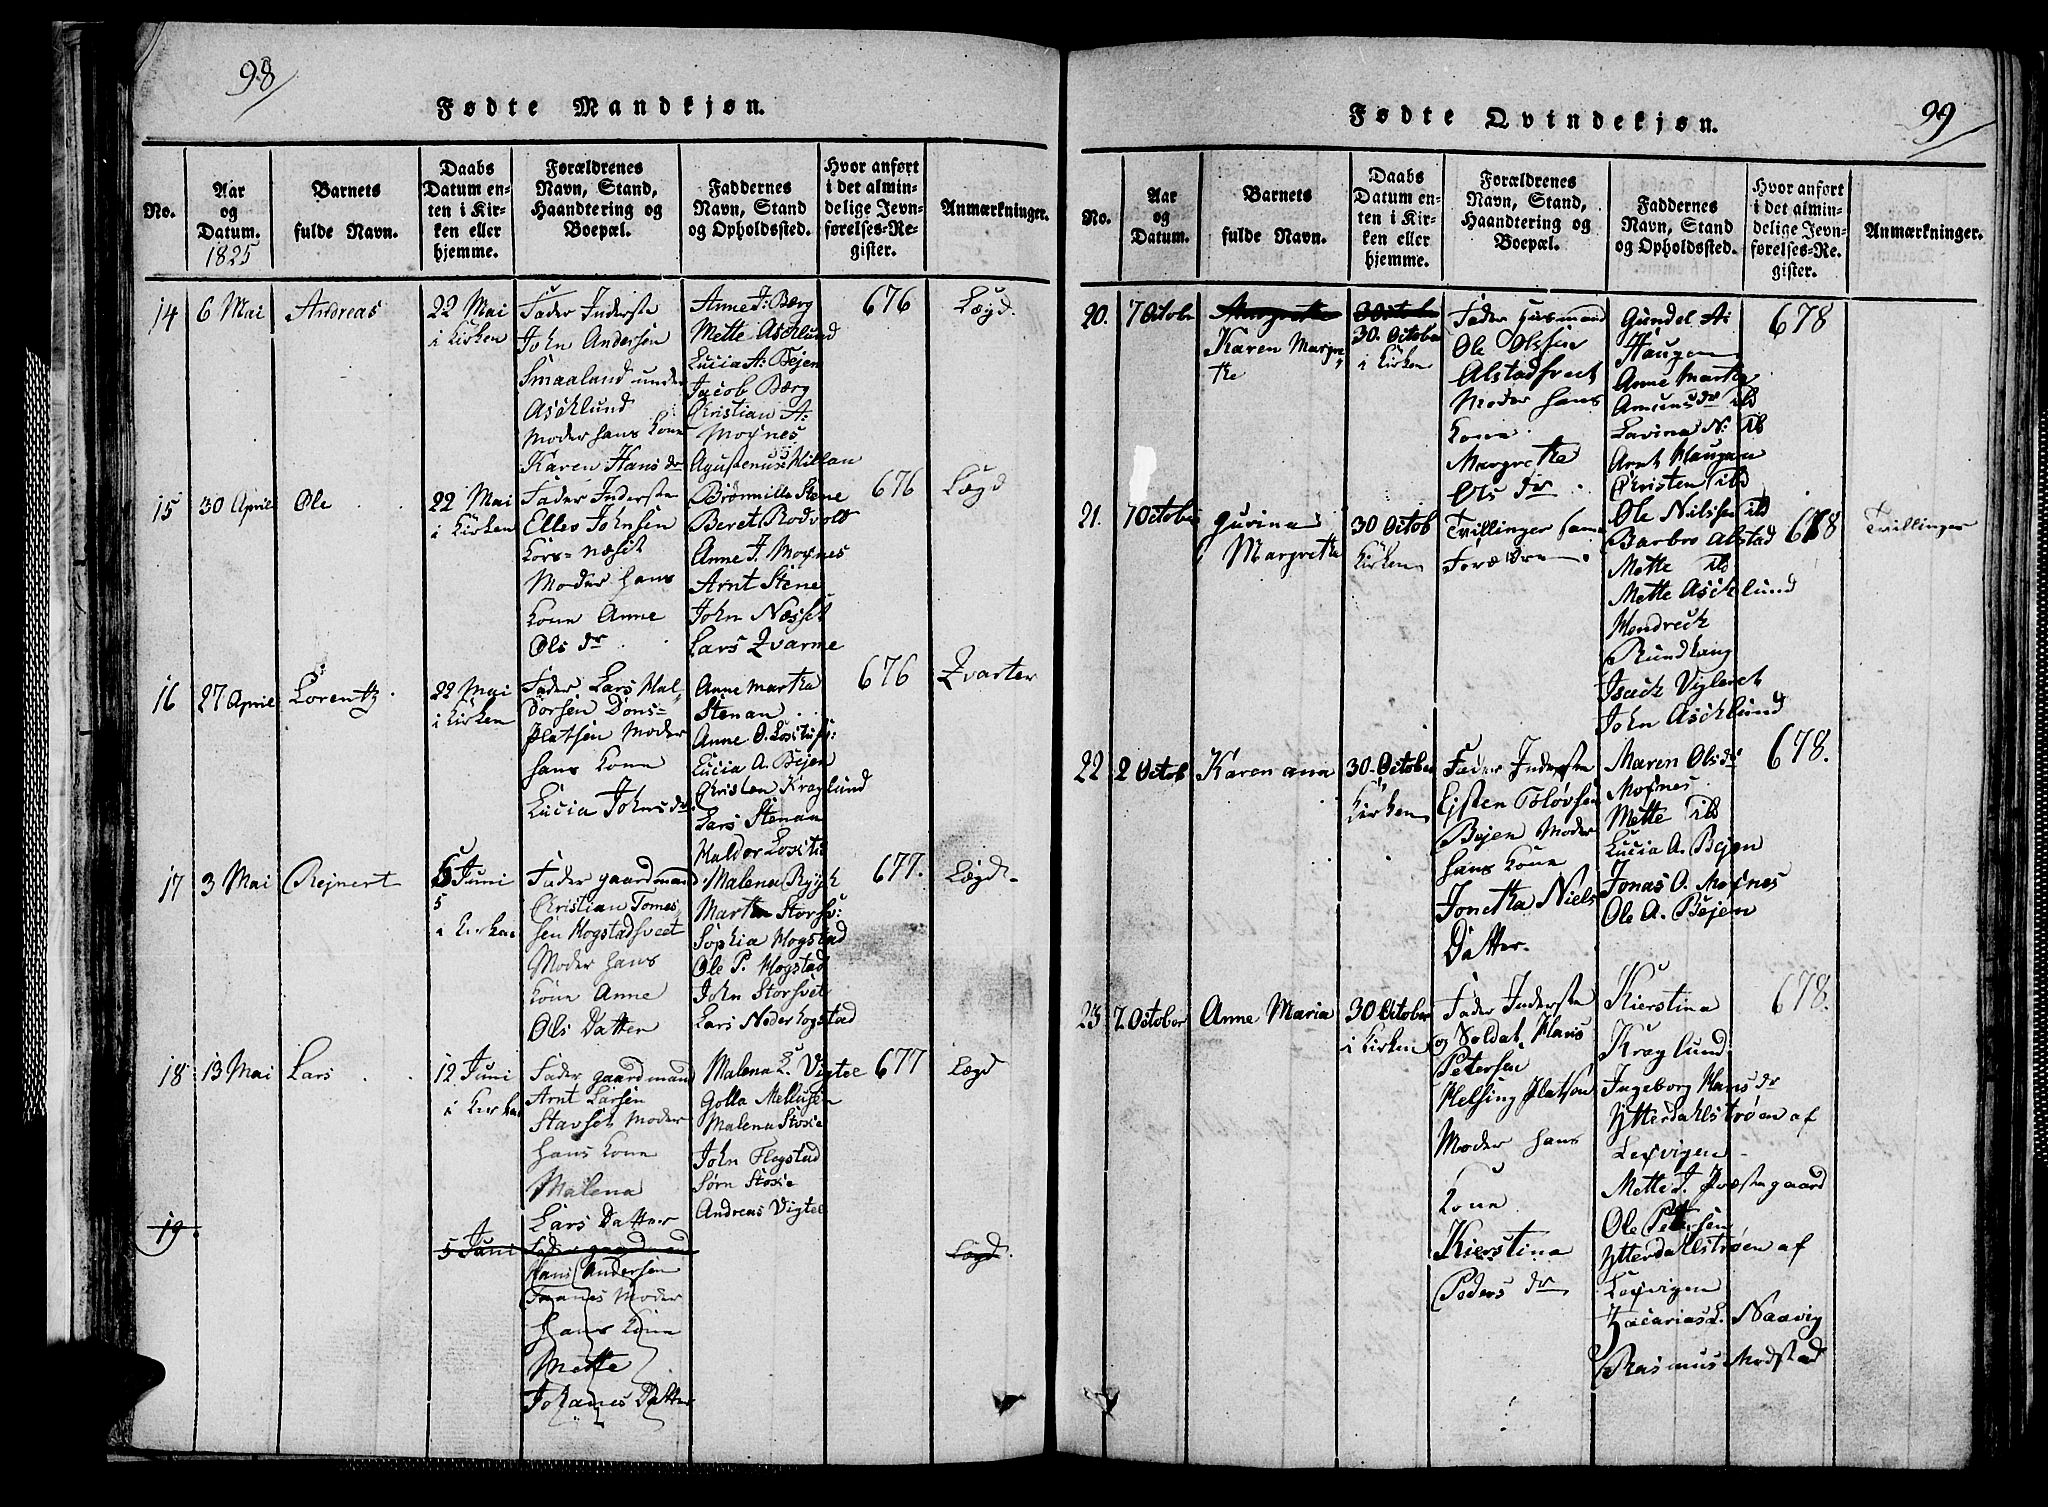 98
Fødte Mandkjøn.
No.
Aar og Datum. 1825
Barnets fulde Navn.
Daabs Datum enten i Kirken eller hjemme.
Forældrenes Navn, Stand, Haandtering og Boepæl.
Faddernes Navn, Stand og Opholdssted.
Hvor anført i det almindelige Jevnførelses-Register.
Anmærkninger.
14
6 Mai
Andreas
22 Mai
i Kirken
Fader Inderste
John Andersen
Smaaland under
Aschlund
Moder hans Kone
Karen Hans dr
Anne J: Berg
Mette Aschlund
Lucia A: Bejen
Jacob Berg
Christian A:
Moxnes
Agustenus Killan
676
Lægd.
15
30 April
Ole
22 Mai
i Kirken
Fader Inderste
Elles Johnsen
Kors=næsit
Moder hans
Kone Anne
Ols dr
Brønnille Stene
Beret Rodvold
Anne J. Moxnes
Arnt Stene
John Næsset
Lars Qvarme
676
Lægd
16
27 April
Lorentz.
22 Mai
i Kirken
Fader Lars Hal-
dorsen Dons=
Platsen Moder
hans Kone
Lucia Johns dr
Anne Martha
Stenan
Anne O. Loxtu
Lucia A. Bejen
Christen Kraglund
Lars Stenan
Haldor Loxtu
676
Qvarter
17
3 Mai
Rejnert
5 Juni
5
i Kirken
Fader gaardmand
Christian Tomes-
sen Hogstadsveet
Moder hans
Kone Anne
Ols Datter
Malena
Martha Storsv:
Sophia Hogstad
Ole P. Hogstad
John Storsvet
Lars Nederhogstad
677.
Lægd.
18
13 Mai
Lars
12 Juni
i Kirken
Fader gaardmand
Arnt Larsen
Stavset Moder
hans Kone
Malena
Lars Datter
Malena L. Vigtel
Golla Mellusen
Malena Stoxie
John Flegstad
Sørn Stoxie
Andreas Vigtel
677
Lægd
19.
5 Juni
Fader gaardmand
Hans Andersen
Moder
hans Kone
Mette
Johanes Datter
Lægd.
99
Fødte Qvindekjøn.
No.
Aar og Datum.
Barnets fulde Navn.
Daabs Datum enten i Kirken eller hjemme.
Forældrenes Navn, Stand, Haandtering og Boepæl.
Faddernes Navn, Stand og Opholdssted.
Hvor anført i det almindelige Jevnførelses-Register.
Anmærkninger.
20.
7 Octob
Margrethe
Karen Margre-
the
30 Octobr
30. October
i Kirken
Fader Husmand
Ole Olssen
Alstadsveet
Moder hans
Kone.
Margrethe
Ols dr.
Gundel A:
Haugen
Anne Martha
Amunsdr ibd
Lavina N: ib
Arnt Haugan
Christen ibd
Ole Nilssen ibd
678
21.
7 October
Guvina
Margretha
30 Octob
Kirken
Tvillinger same
Foræ dre
Barbro Alstad
Mette ibd
Mette Aschlund
Hendrich
Rundhaug
Isach Vigleret
John Aschlund
678
Tvillinger
22
2 Octob
Karen ana
30. October
Kirken
Fader Inderste
Ejsten
Bejen Moder
hans Kone
Jonetha Niels
Datter.
Maren Olsdr
Moxnes
Mette ibd
Lucia A. Bejen
Jonas O. Moxnes
Ole A. Bejen
678.
23
7. October
Anne Maria
30 October
i Kirken
Fader Inderste
og Soldat, Hans
Petersen
Helsing Platsen
Moder hans
Kone
Kierstina
Peders dr
Kierstina
Kraglund
Ingeborg Hans dr
Ytterdahlstrøen af
Lexvigen
Mette J. Præstegaard
Ole Petersen
Ytterdahlstrøen af
Lexvigen
Zacarias L. Naavig
Rasmus Modstad
678.